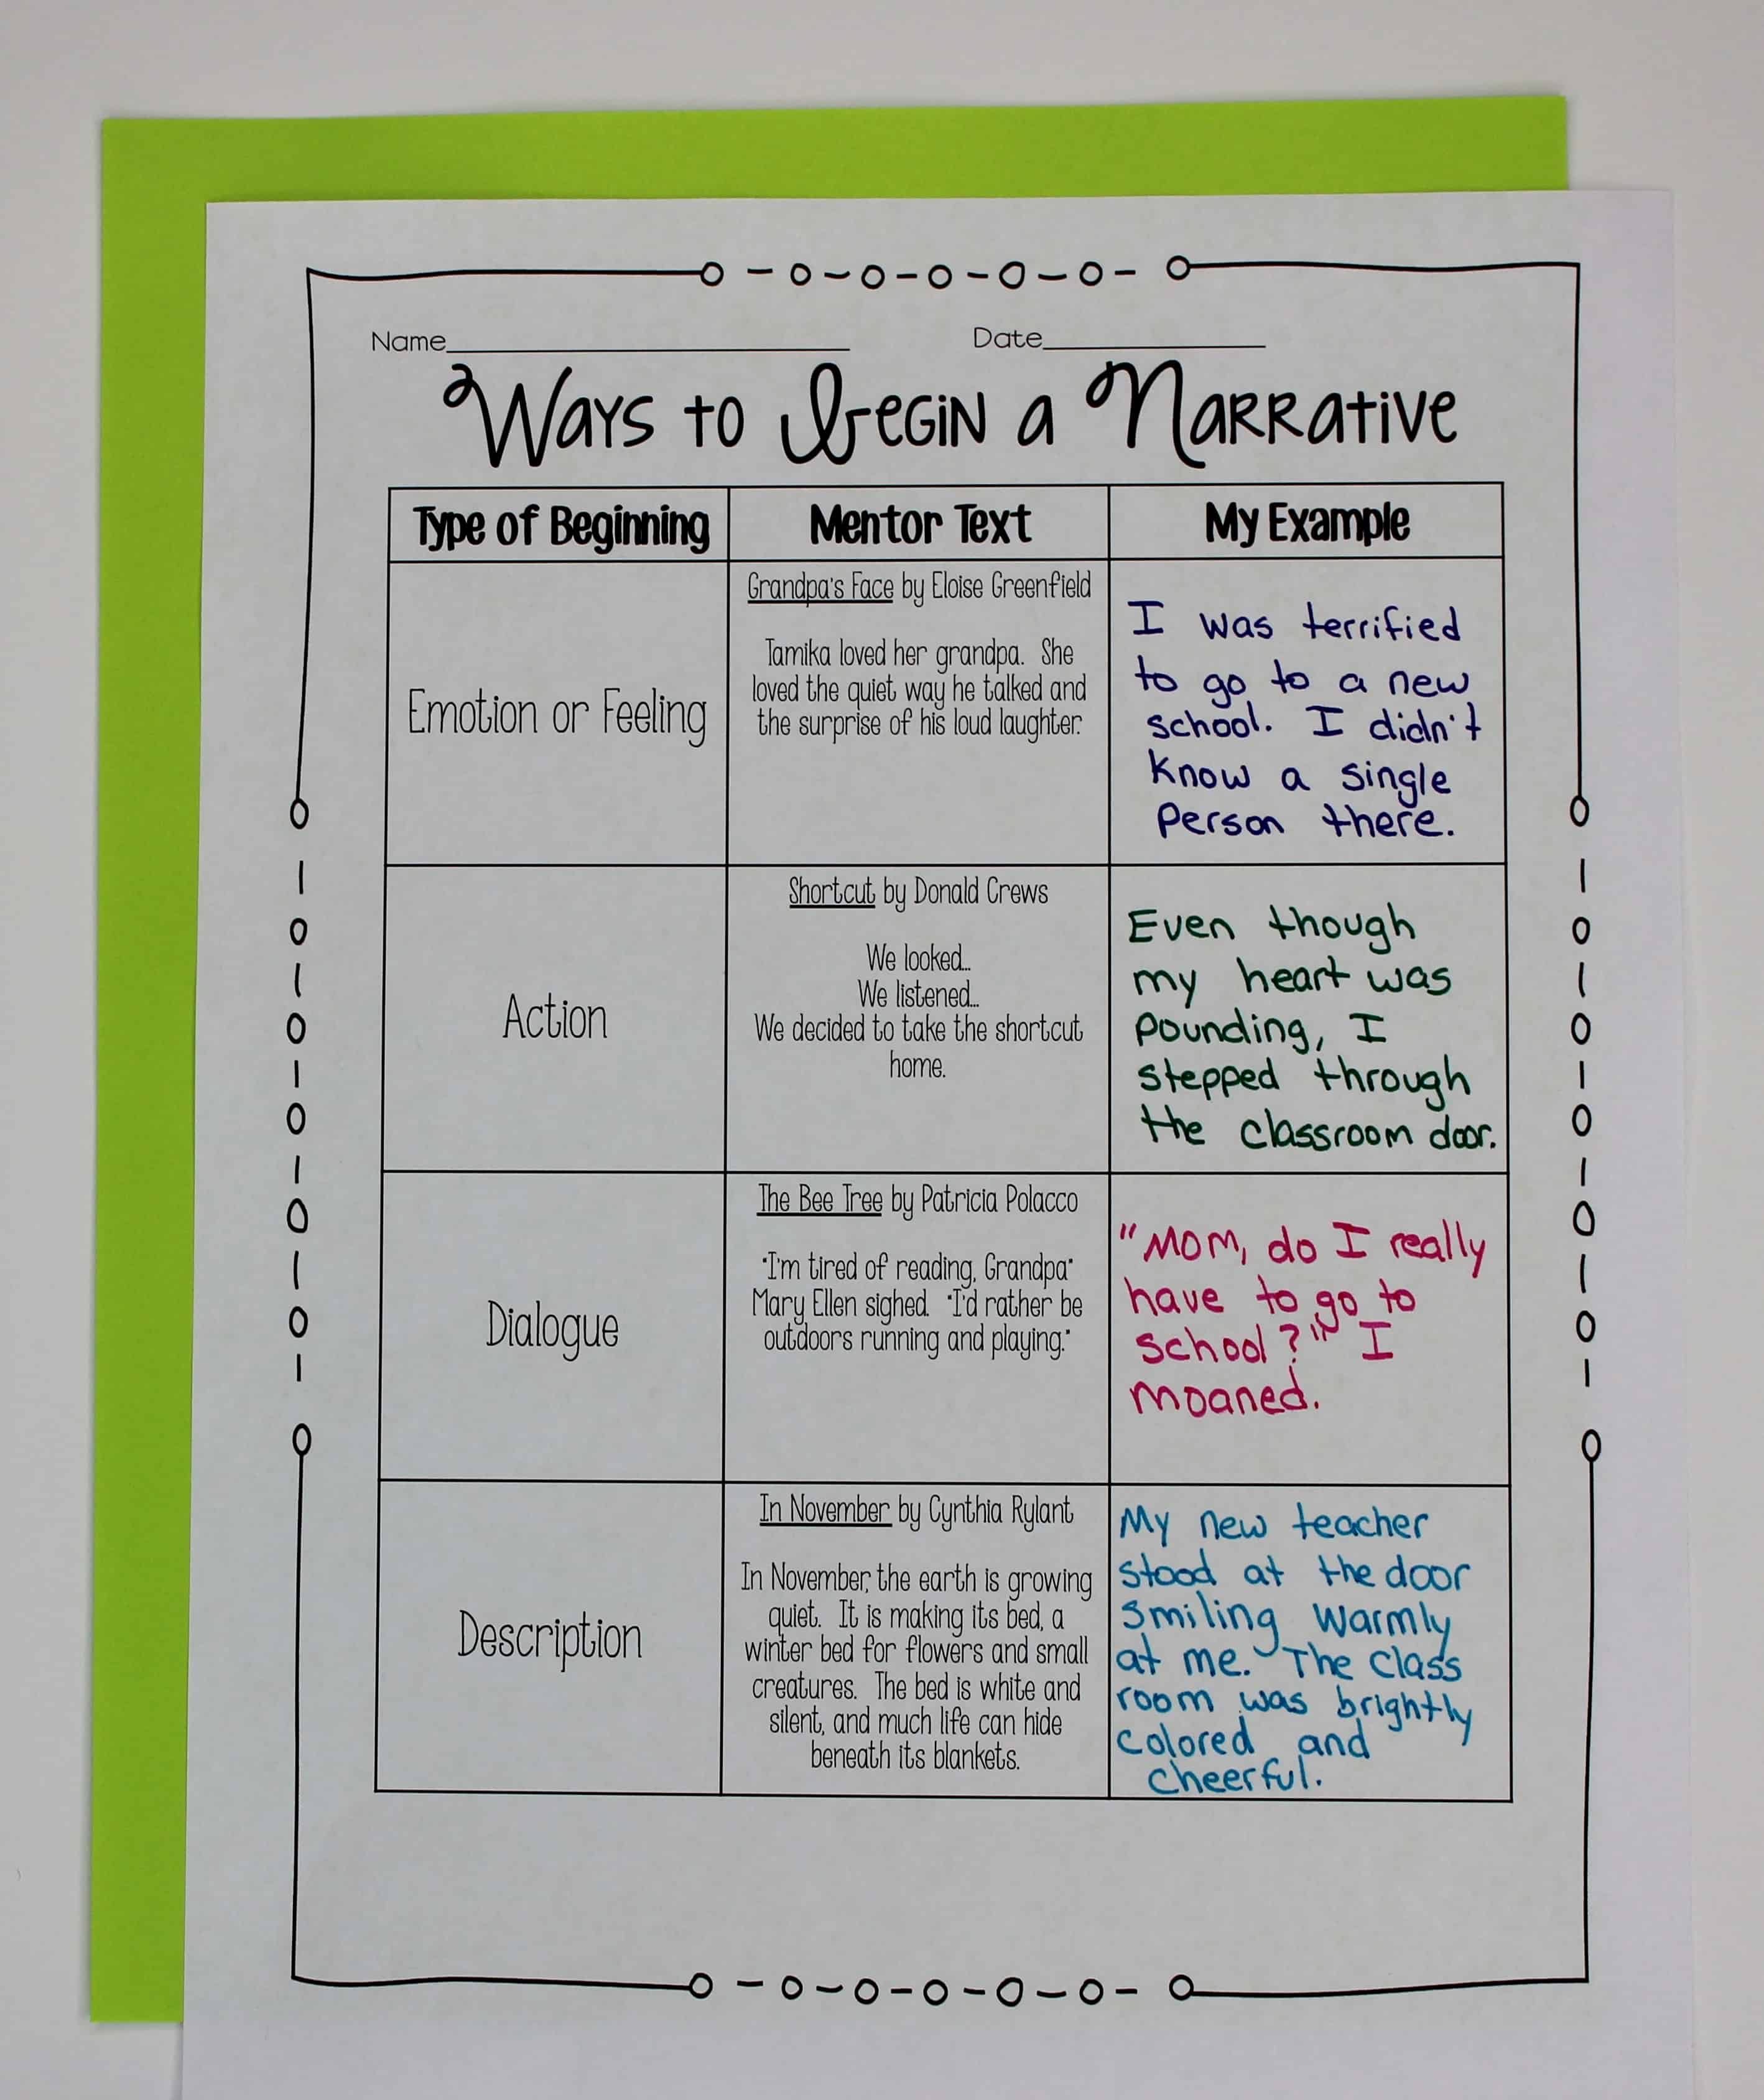 Name Date
Ways to Begin a Narrative
Type of Beginning
Mentor Text
My Example
Emotion or Feeling
Grandpa's Face by Eloise Greenfield
Tamika loved her grandpa. She
loved the quiet way he talked and
the surprise of his loud laughter.
I was terrified
to go to a new
school. I didn't
know a single
person there.
Action
Shortcut by Donald Crews
We looked...
We listened...
We decided to take the shortcut
home.
Even though
my heart was
pounding, I
stepped through
the classroom door.
Dialogue
The Bee Tree by Patricia Polacco
"I'm tired of reading, Grandpa"
Mary Ellen sighed. "I'd rather be
outdoors running and playing."
"Mom, do I really
have to go to
school?" I
moaned.
Description
In November by Cynthia Rylant
In November, the earth is growing
quiet. It is making its bed, a
winter bed for flowers and small
creatures. The bed is white and
silent, and much life can hide
beneath its blankets.
My new teacher
stood at the door
smiling warmly
at me. The class
room was brightly
colored and
cheerful.